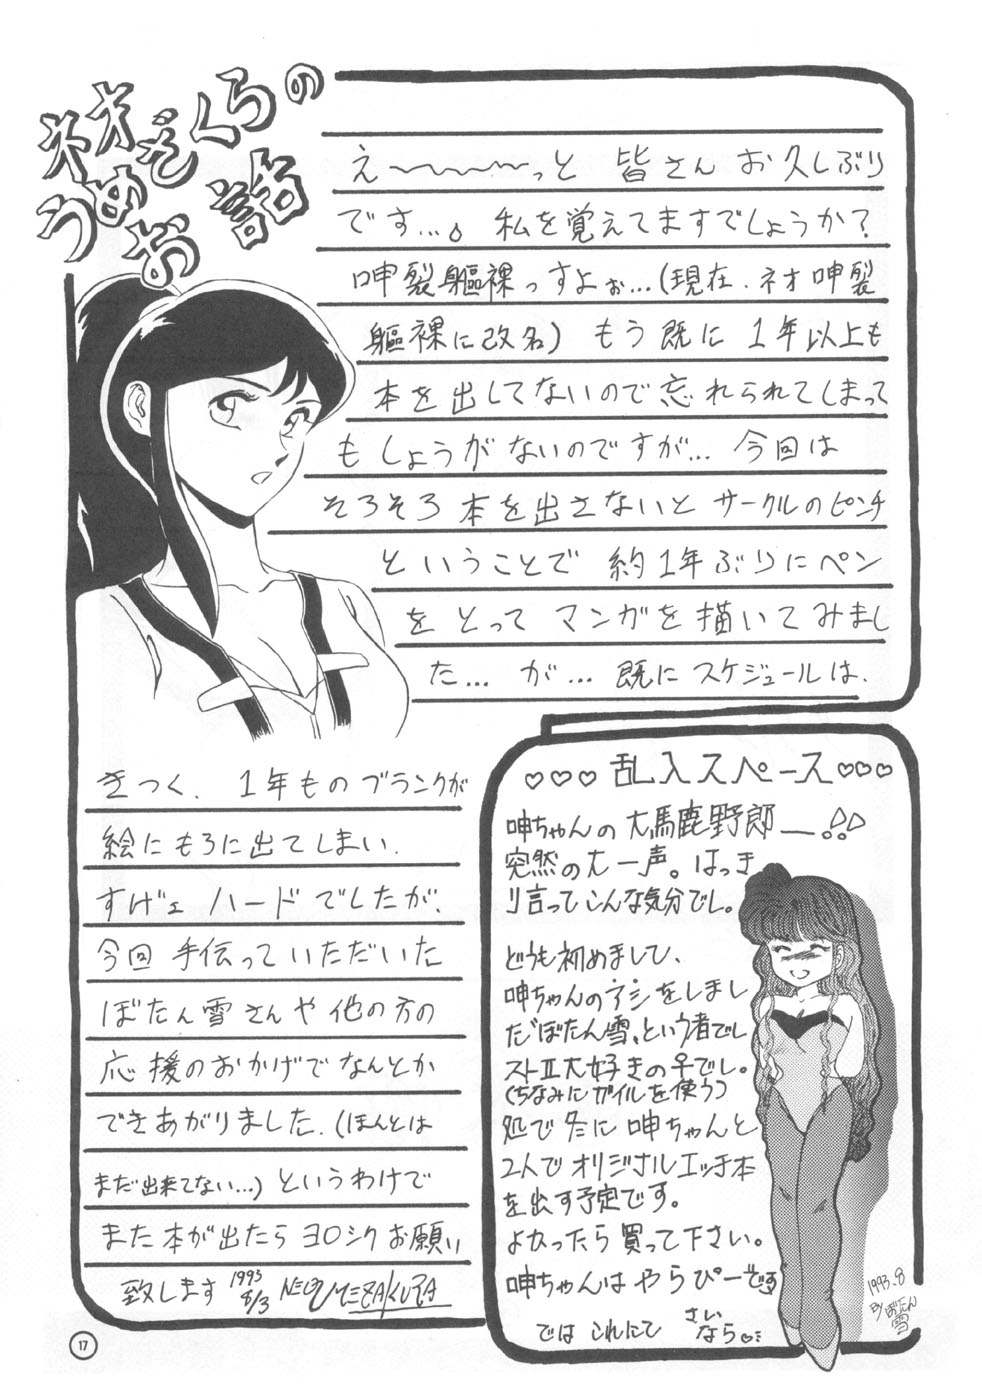 ネオ
うめぞくらの
お話
え〜〜〜っと 皆さん お久しぶり
です…。私を覚えてますでしょうか?
呻裂軀裸っすよぉ…(現在、ネオ呻裂
軀裸に改名) もう既に 1年以上も
本を出してないので忘れられてしまって
もしょうがないのですが… 今回は
そろそろ本を出さないとサークルのピンチ
ということで 約1年ぶりにペン
をとって マンガを描いてみまし
た… が… 既にスケジュールは、
きつく、1年ものブランクが
絵にもろに出てしまい、
すげェ ハードでしたが、
今回 手伝っていただいた
ぼたん雪さんや他の方の
応援のおかげでなんとか
できあがりました。(ほんとは
まだ出来てない…)というわけで
また本が出たらヨロシクお願い
致します 1993 8/3 NEO UMEZAKURA
♡♡♡乱入スペース♡♡♡
呻ちゃんの大馬鹿野郎―!!
突然の大一声。はっき
り言ってこんな気分でし。
どうも初めまして、
呻ちゃんのアシをしまし
た“ぼたん雪”という者でし
ストII大好きの♀でし。
(ちなみにガイルを使う)
処で冬に 呻ちゃんと
2人でオリジナルエッチ本
を出す予定です。
よかったら買って下さい。
呻ちゃんは やらぴーです
では これにて さいなら♡…
1993.8
By ぼたん雪
17